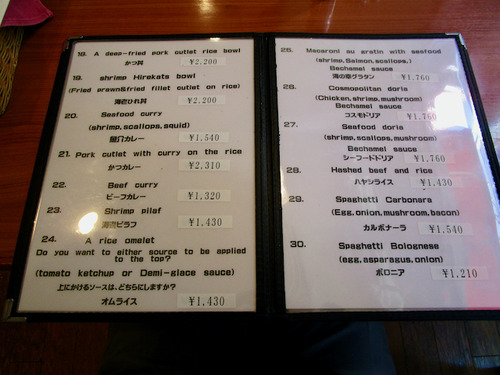 18. A deep-fried pork cutlet rice bowl
かつ丼 ¥2,200
19. shrimp Hirekats bowl
(Fried prawn&fried fillet cutlet on rice)
海老ひれ丼 ¥2,200
20. Seafood curry
(shrimp,scallops,squid)
魚介カレー ¥1,540
21. Pork cutlet with curry on the rice
かつカレー ¥2,310
22. Beef curry
ビーフカレー ¥1,320
23. Shrimp pilaf
海老ピラフ ¥1,430
24. A rice omelet
Do you want to either source to be applied
to the top?
(tomato ketchup or Demi-glace sauce)
上にかけるソースは、どちらにしますか?
オムライス ¥1,430
25. Macaroni au gratin with seafood
(shrimp,Salmon,scallops,)
Bechamel sauce
海の幸グラタン ¥1,760
26. Cosmopolitan doria
(Chicken,shrimp,mushroom)
Bechamel sauce
コスモドリア ¥1,760
27. Seafood doria
(shrimp,scallops,mushroom)
Bechamel sauce
シーフードドリア ¥1,760
28. Hashed beef and rice
ハヤシライス ¥1,430
29. Spaghetti Carbonara
(Egg,onion,mushroom,bacon)
カルボナーラ ¥1,540
30. Spaghetti Bolognese
(egg,asparagus,onion)
ボロニア ¥1,210